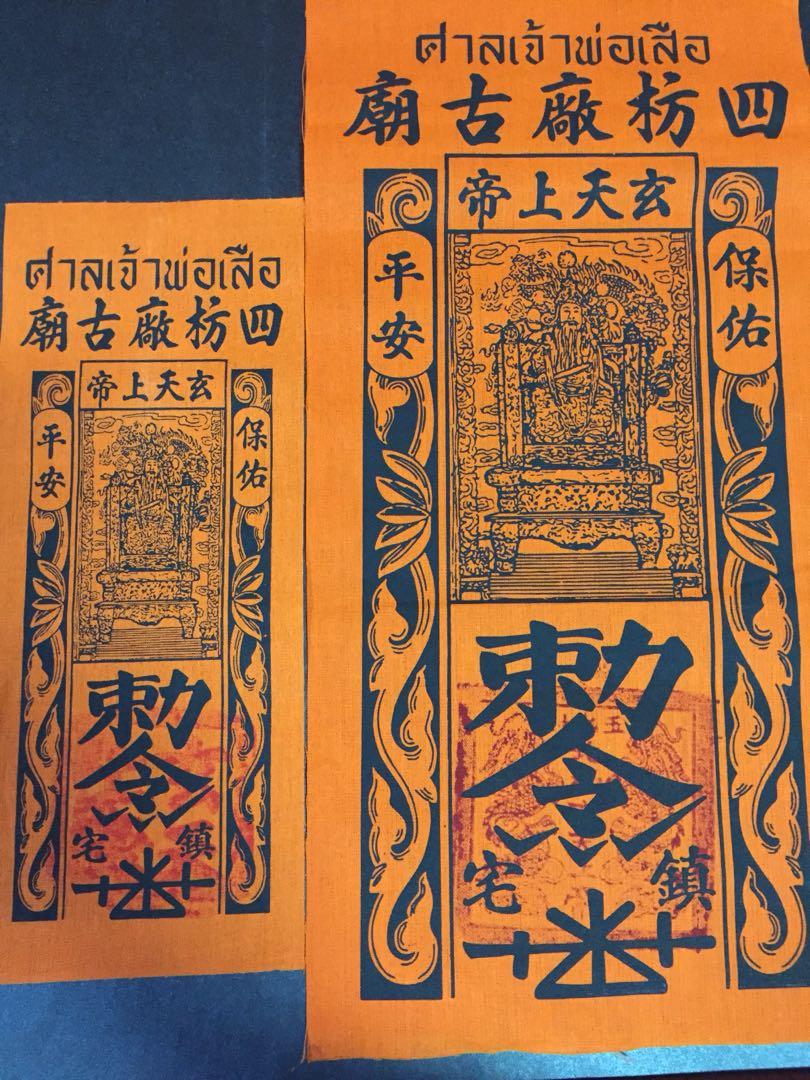 ศาลเจ้าพ่อเสือ
四枋廠古廟
玄天上帝
保佑
平安
勅令
鎮宅
ศาลเจ้าพ่อเสือ
四枋廠古廟
玄天上帝
保佑
平安
勅令
鎮宅